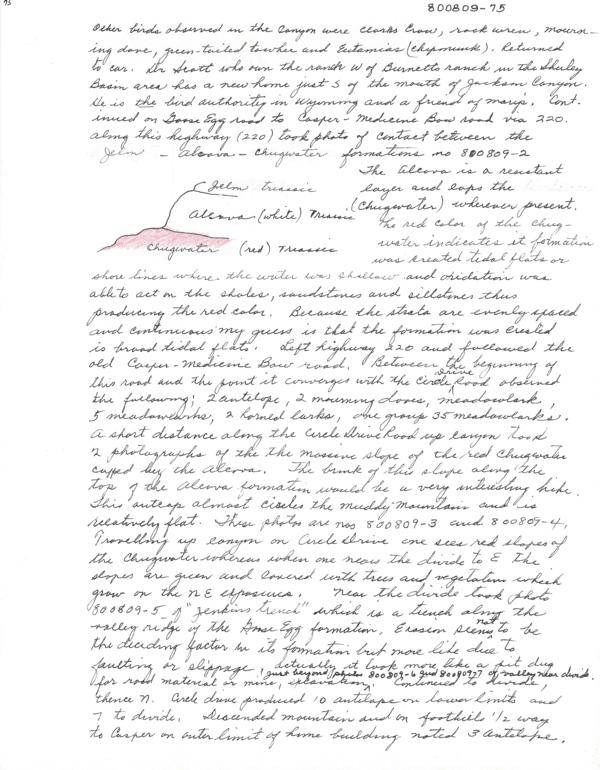 75
800809-75
Other birds observed in the Canyon were Clarks Crow, rock wren, mourn-
ing dove, green-tailed towhee and Eutamias (chipmunk). Returned
to car. Dr Scott who own the ranch W of Burnetts ranch in the Shirley
Basin area has a new home just S of the mouth of Jackson Canyon.
He is the bird authority in Wyoming and a friend of ours. Cont-
inued on Goose Egg road to Casper - Medicine Bow road via 220.
along this highway (220) took photo of contact between the
Jelm - Alcova - Chugwater formations no 800809-2
The Alcova is a resistant
layer and caps the
(Chugwater) wherever present.
The red color of the Chug-
water indicates it formation
was created tidal flats or
Jelm Triassic
Alcova (white) Triassic
Chugwater (red) Triassic
shore lines where the water was shallow and oxidation was
able to act on the shales, sandstones and siltstones thus
producing the red color. Because the strata are evenly spaced
and continuous my guess is that the formation was created
is broad tidal flats. Left highway 220 and followed the
old Casper-Medicine Bow road. Between the beginning of
this road and the point it converges with the Circle Drive Road observed
the following; 2 antelope, 2 mourning doves, meadowlark,
5 meadowlarks, 2 horned larks, one group 35 meadowlarks.
A short distance along the Circle Drive Road up canyon took
2 photographs of the the massive slope of the red Chugwater
capped by the Alcova. The brink of this slope along the
top of the Alcova formation would be a very interesting hike.
This outcrop almost circles the muddy Mountain and is
relatively flat. These photos are nos 800809-3 and 800809-4,
Travelling up canyon on Circle Drive one sees red slopes of
the Chugwater whereas when one nears the divide to E the
slopes are green and covered with trees and vegetation which
grow on the N E exposures. Near the divide took photo
800809-5 of "Jenkins trench" which is a trench along the
valley ridge of the Goose Egg formation. Erosion seems not to be
the deciding factor in its formation but more like due to
faulting or slippage, actually it look more like a pit dug
for road material or mine, excavation. Just beyond photos 800809-6 and 800809-7 of valley near divide. Continued to divide,
thence N. Circle drive produced 10 antelope on lower limits and
7 to divide. Descended mountain and on foothills 1/2 way
to Casper on outer limit of home building noted 3 Antelope.